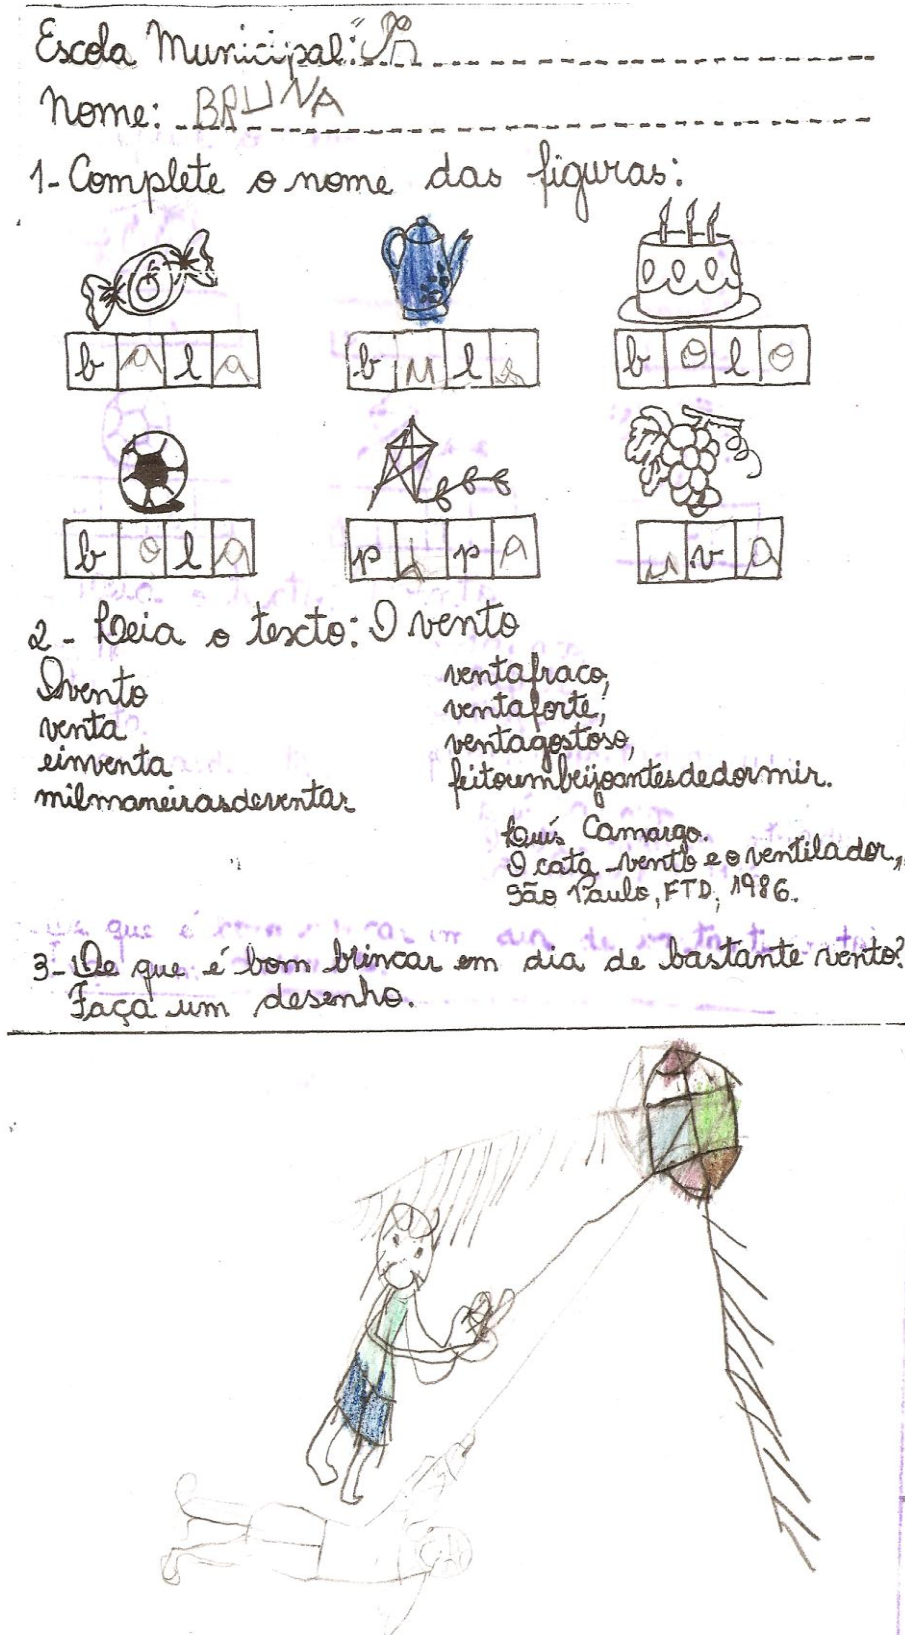 Escola Municipal:
Nome: BRUNA
1- Complete o nome das figuras:
bala bule bolo
bola pipa uva
2- Leia o texto: O vento
Ovento
venta
einventa
milmaneirasdeventar
ventafraco,
ventaforte,
ventagostoso,
feitoumbeijoantesdedormir.
Luís Camargo.
O cata-vento e o ventilador,
São Paulo, FTD, 1986.
3- De que é bom brincar em dia de bastante vento?
Faça um desenho.